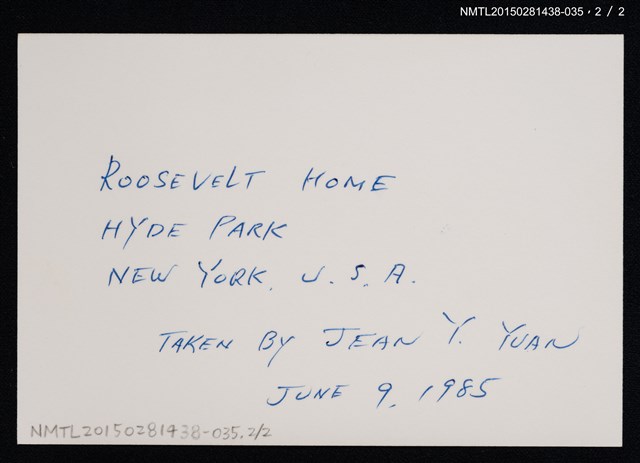 NMTL20150281438-035,2 / 2
ROOSEVELT HOME
HYDE PARK
NEW YORK. U. S. A.
TAKEN BY JEAN Y. YUAN
JUNE 9, 1985
NMTL20150281438-035.2/2